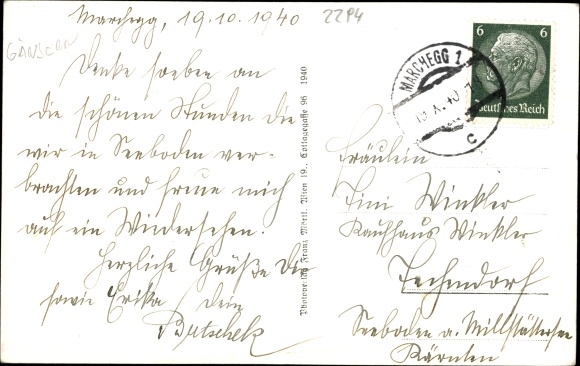 Marchegg, 19.10.1940
2294
GÄNSERN
Denke soeben an
die schönen Stunden die
wir in Seeboden ver-
brachten und freue mich
auf ein Wiedersehen.
Herzliche Grüße Dir
sowie Erika Dein
Butschek
Photoverlag Franz Mörtl, Wien 19., Cottagegasse 96 1940
6 6
Deutsches Reich
MARCHEGG 1
19.X.40
c
Fräulein
Fini Winkler
Kaufhaus Winkler
Techendorf
Seeboden a. Millstättersee
Kärnten